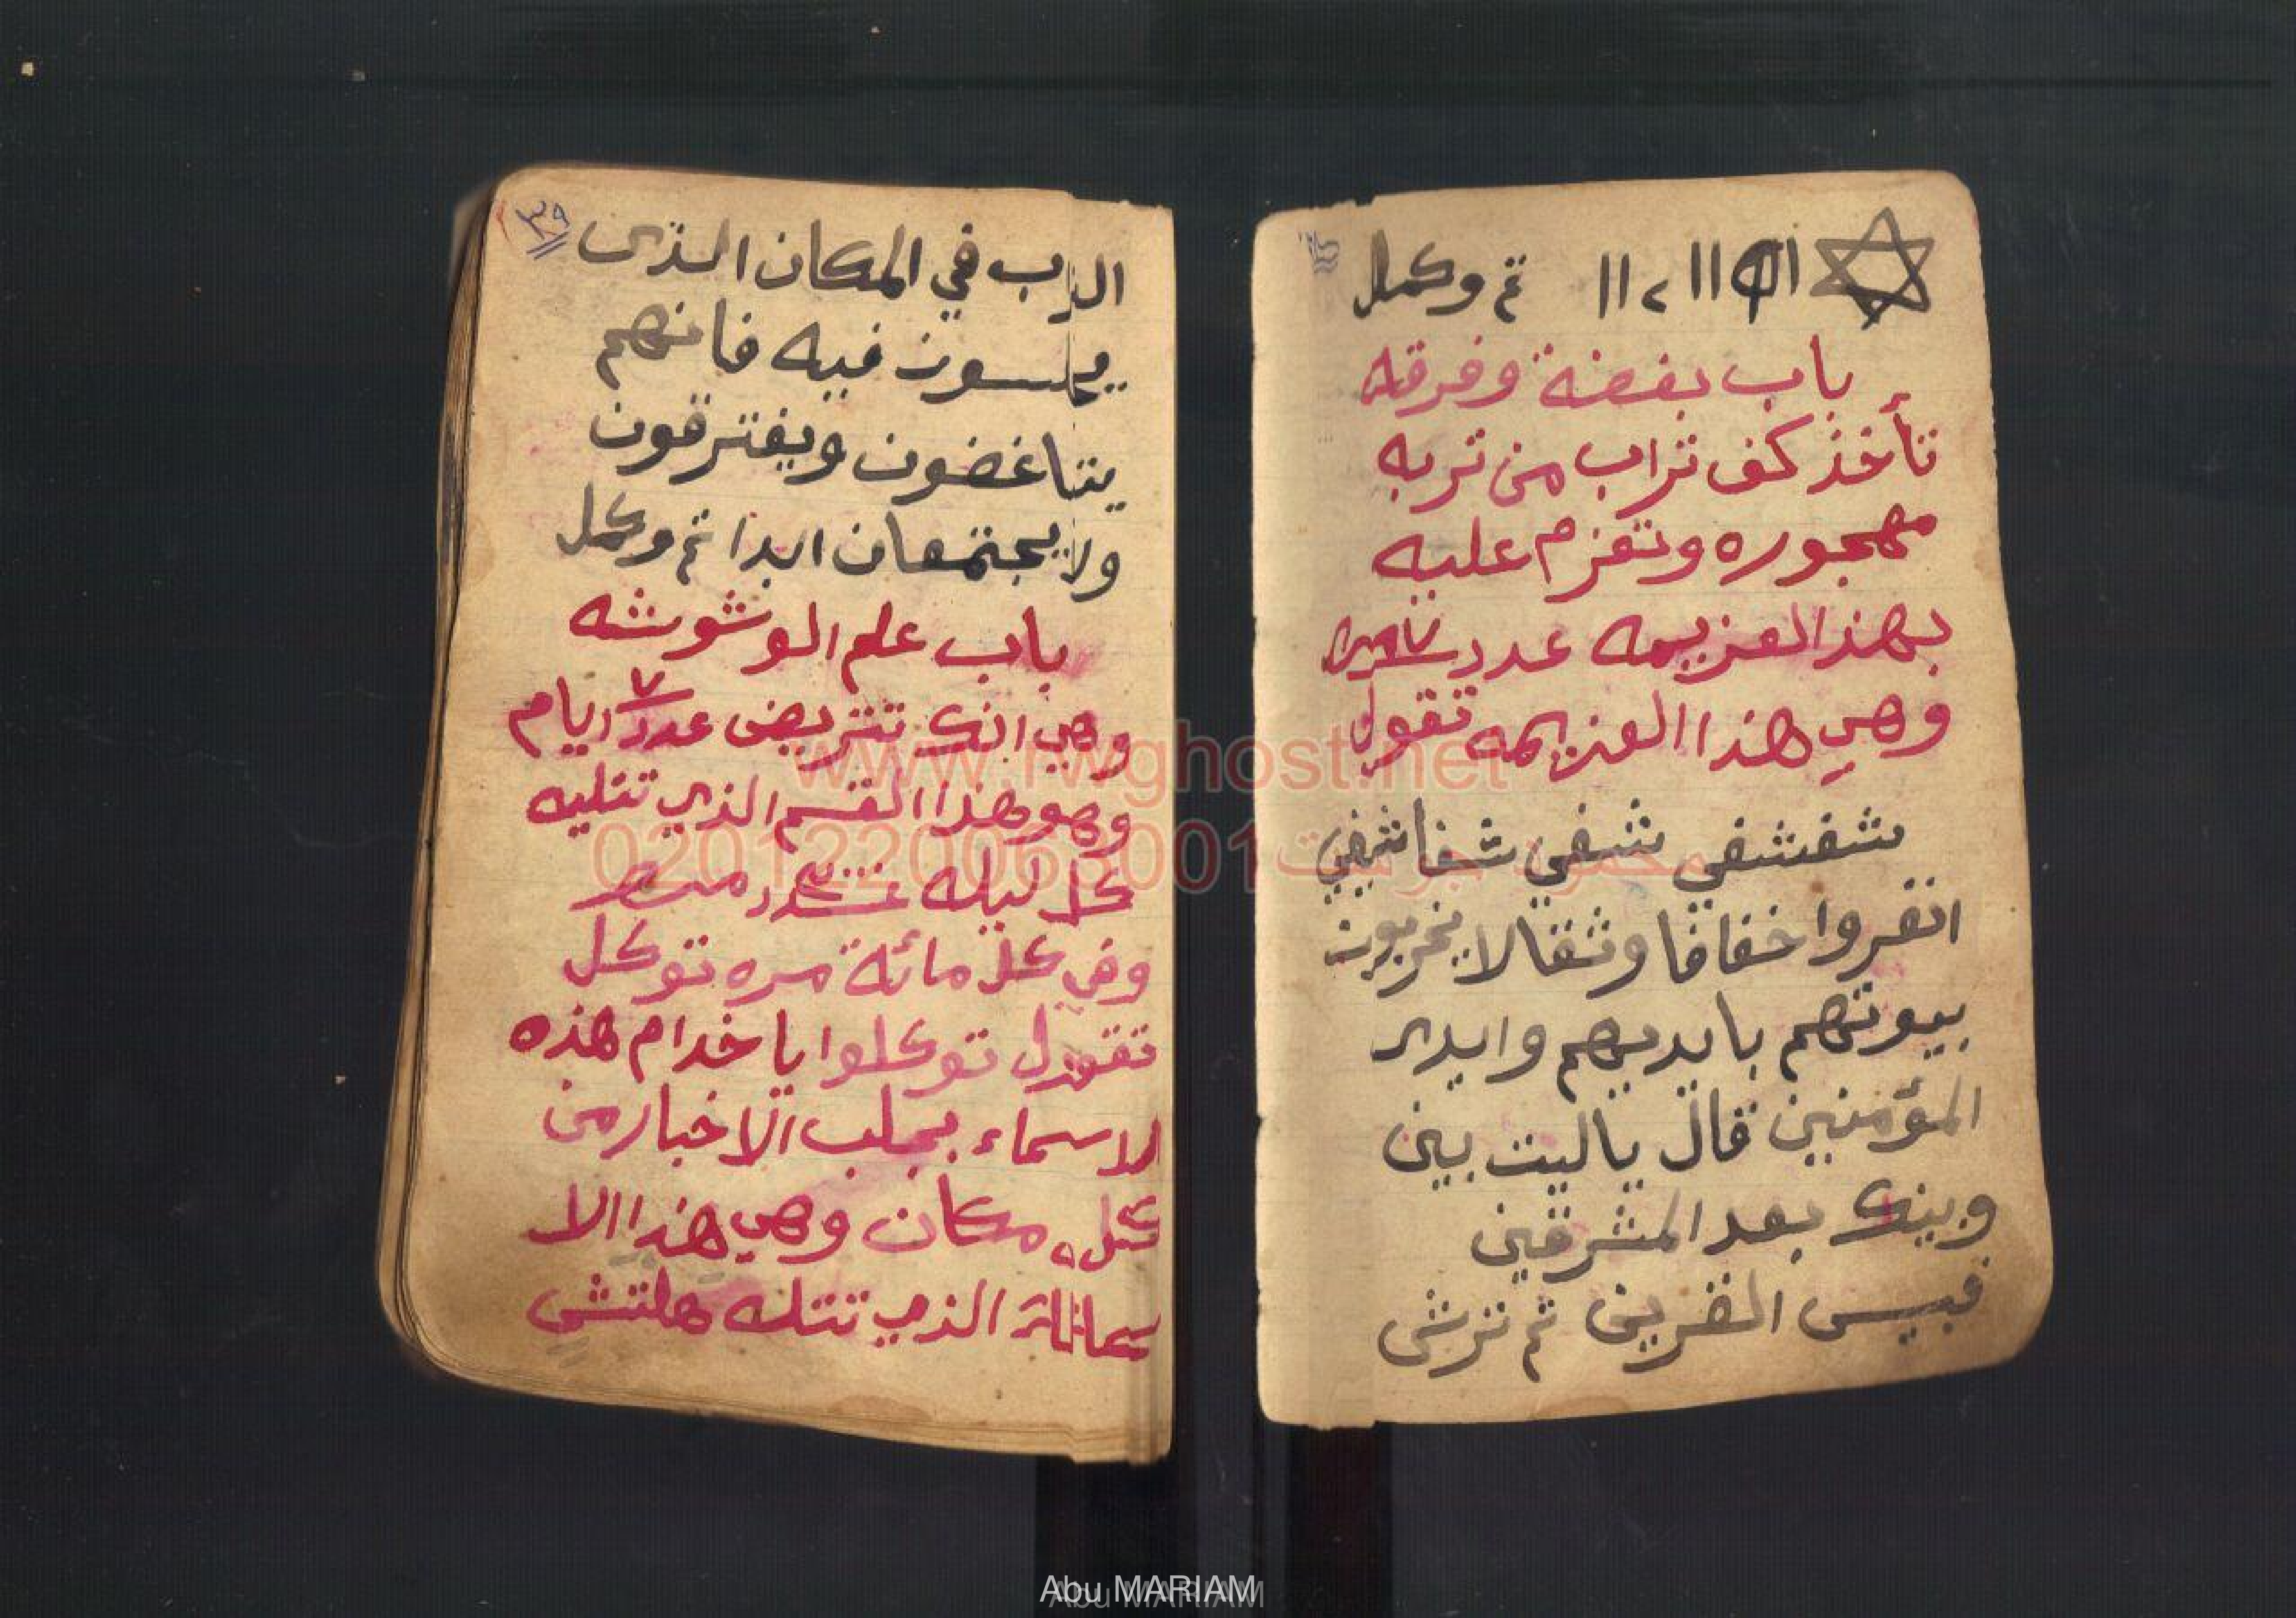 ثم وكمل
باب بغضة وفرقه
تأخذ كف تراب من تربه
مهجوره وتعزم عليه
بهذا العزيمه عدد ٧ مره
وهي هذا العزيمه تقول
شفشفي شفي شفاشفي
انفروا خفافا وثقالا يخربون
بيوتهم بايديهم وايدى
المؤمنين قال ياليت بيني
وبينك بعد المشرقين
فبيس القرين ثم ترش
٣٩
التراب في المكان الذى
يجلسون فيه فانهم
يتباغضون ويفترقون
ولا يجتمعان ابدا تم وكمل
باب علم الوشوشه
وهي انك تتريض عدد ٧ ايام
وهو هذا القسم الذي تتليه
كل ليله عدد مره
وفي كل مائة مره توكل
تقول توكلوا يا خدام هذه
الاسماء بجلب الاخبار من
كل مكان وهي هذا الا
سمائة الذي تتله هلتشى
www.rwghost.net
محمود جوست 0201220063001
Abu MARIAM